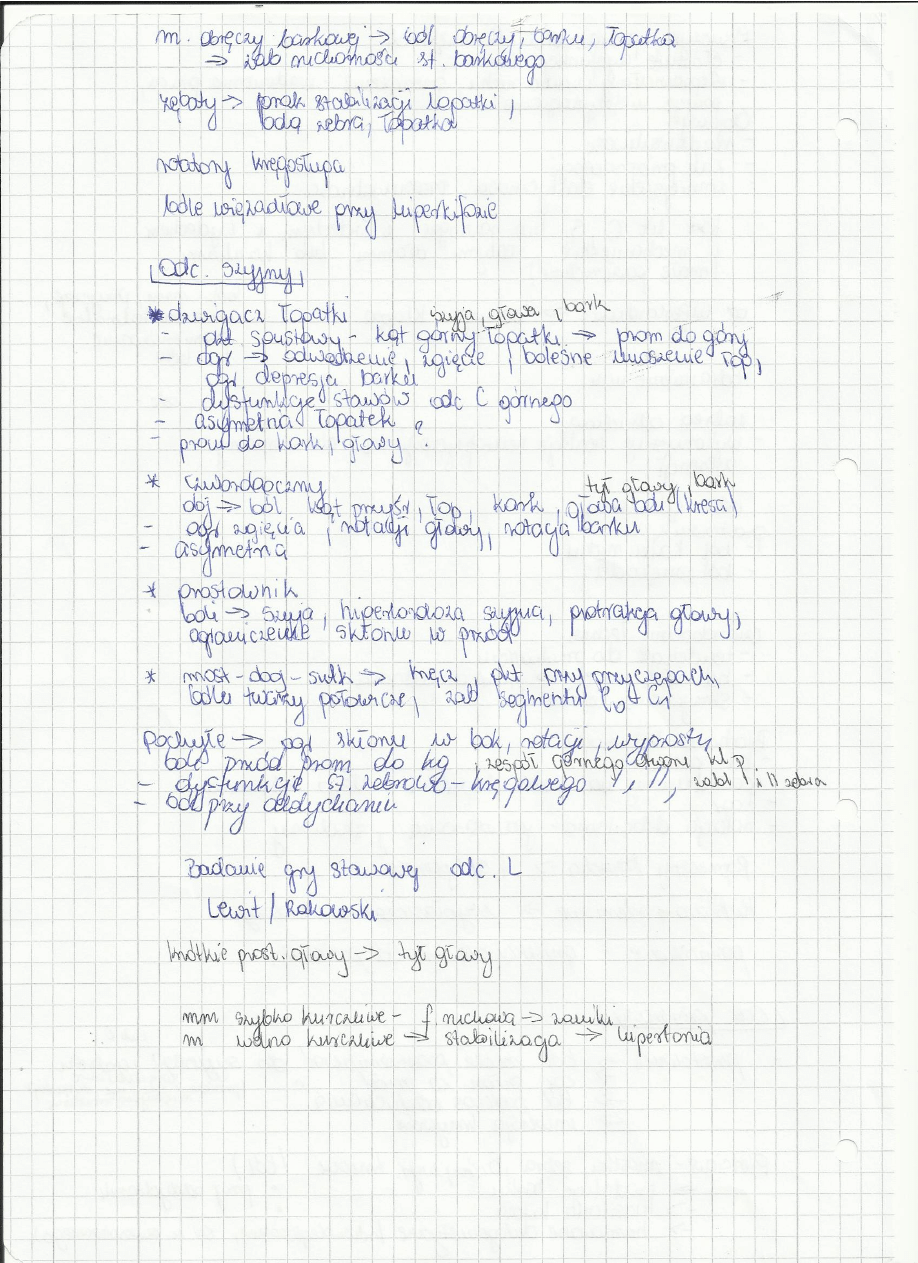 m. obręczy barkowej → ból obręczy, barku, łopatka
→ zab ruchomości st. barkowego
zębaty → brak stabilizacji łopatki,
bolą żebra, łopatka
rotatory kręgosłupa
bóle więzadłowe przy hiperkifozie
Odc. szyjny
szyja, głowa, bark
* dźwigacz łopatki
pkt spustowy - kąt górny łopatki → prom do góry
- ogr → odwodzenie, zgięcie, bolesne unoszenie łop,
ogr depresja barku
- dysfunkcje stawów odc C górnego
- asymetria łopatek
- prom do kark, głowy ?
tył głowy, bark
* czworoboczny
doj → ból kąt przyśr, łop, kark, głowa boli (kresa)
- ogr zgięcia, rotacji głowy, rotacja barku
- asymetria
* prostownik
boli → szyja, hiperlordoza szyjna, protrakcja głowy,
ograniczenie skłonu w przód
* most-doj-sutk → kręcz, pkt przy przyczepach,
bóle twarzy połowicze, zab segmentu C0-C1
Pochyłe → ogr skłonu w bok, rotacji, wyprostu,
ból przód prom do kg, zespół górnego otworu kl p
- dysfunkcje st. żebrowo-kręgowego I, II, zabl I i II żebra
- ból przy oddychaniu
Badanie gry stawowej odc. L
Lewit / Rakowski
krótkie prost. głowy → tył głowy
mm szybko kurczliwe - f. ruchowa → zaniki
m wolno kurczliwe → stabilizacja → hipertonia